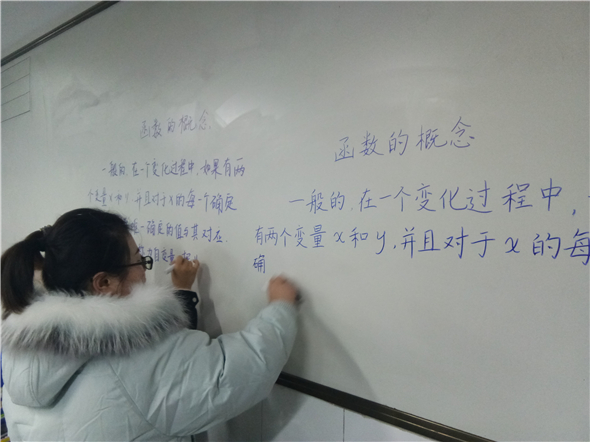 函数的概念
一般的,在一个变化过程中,如果有两
个变量x和y,并且对于x的每一个确定
唯一确定的值与其对应,
自变量
函数的概念
一般的,在一个变化过程中,
有两个变量x和y,并且对于x的每
确